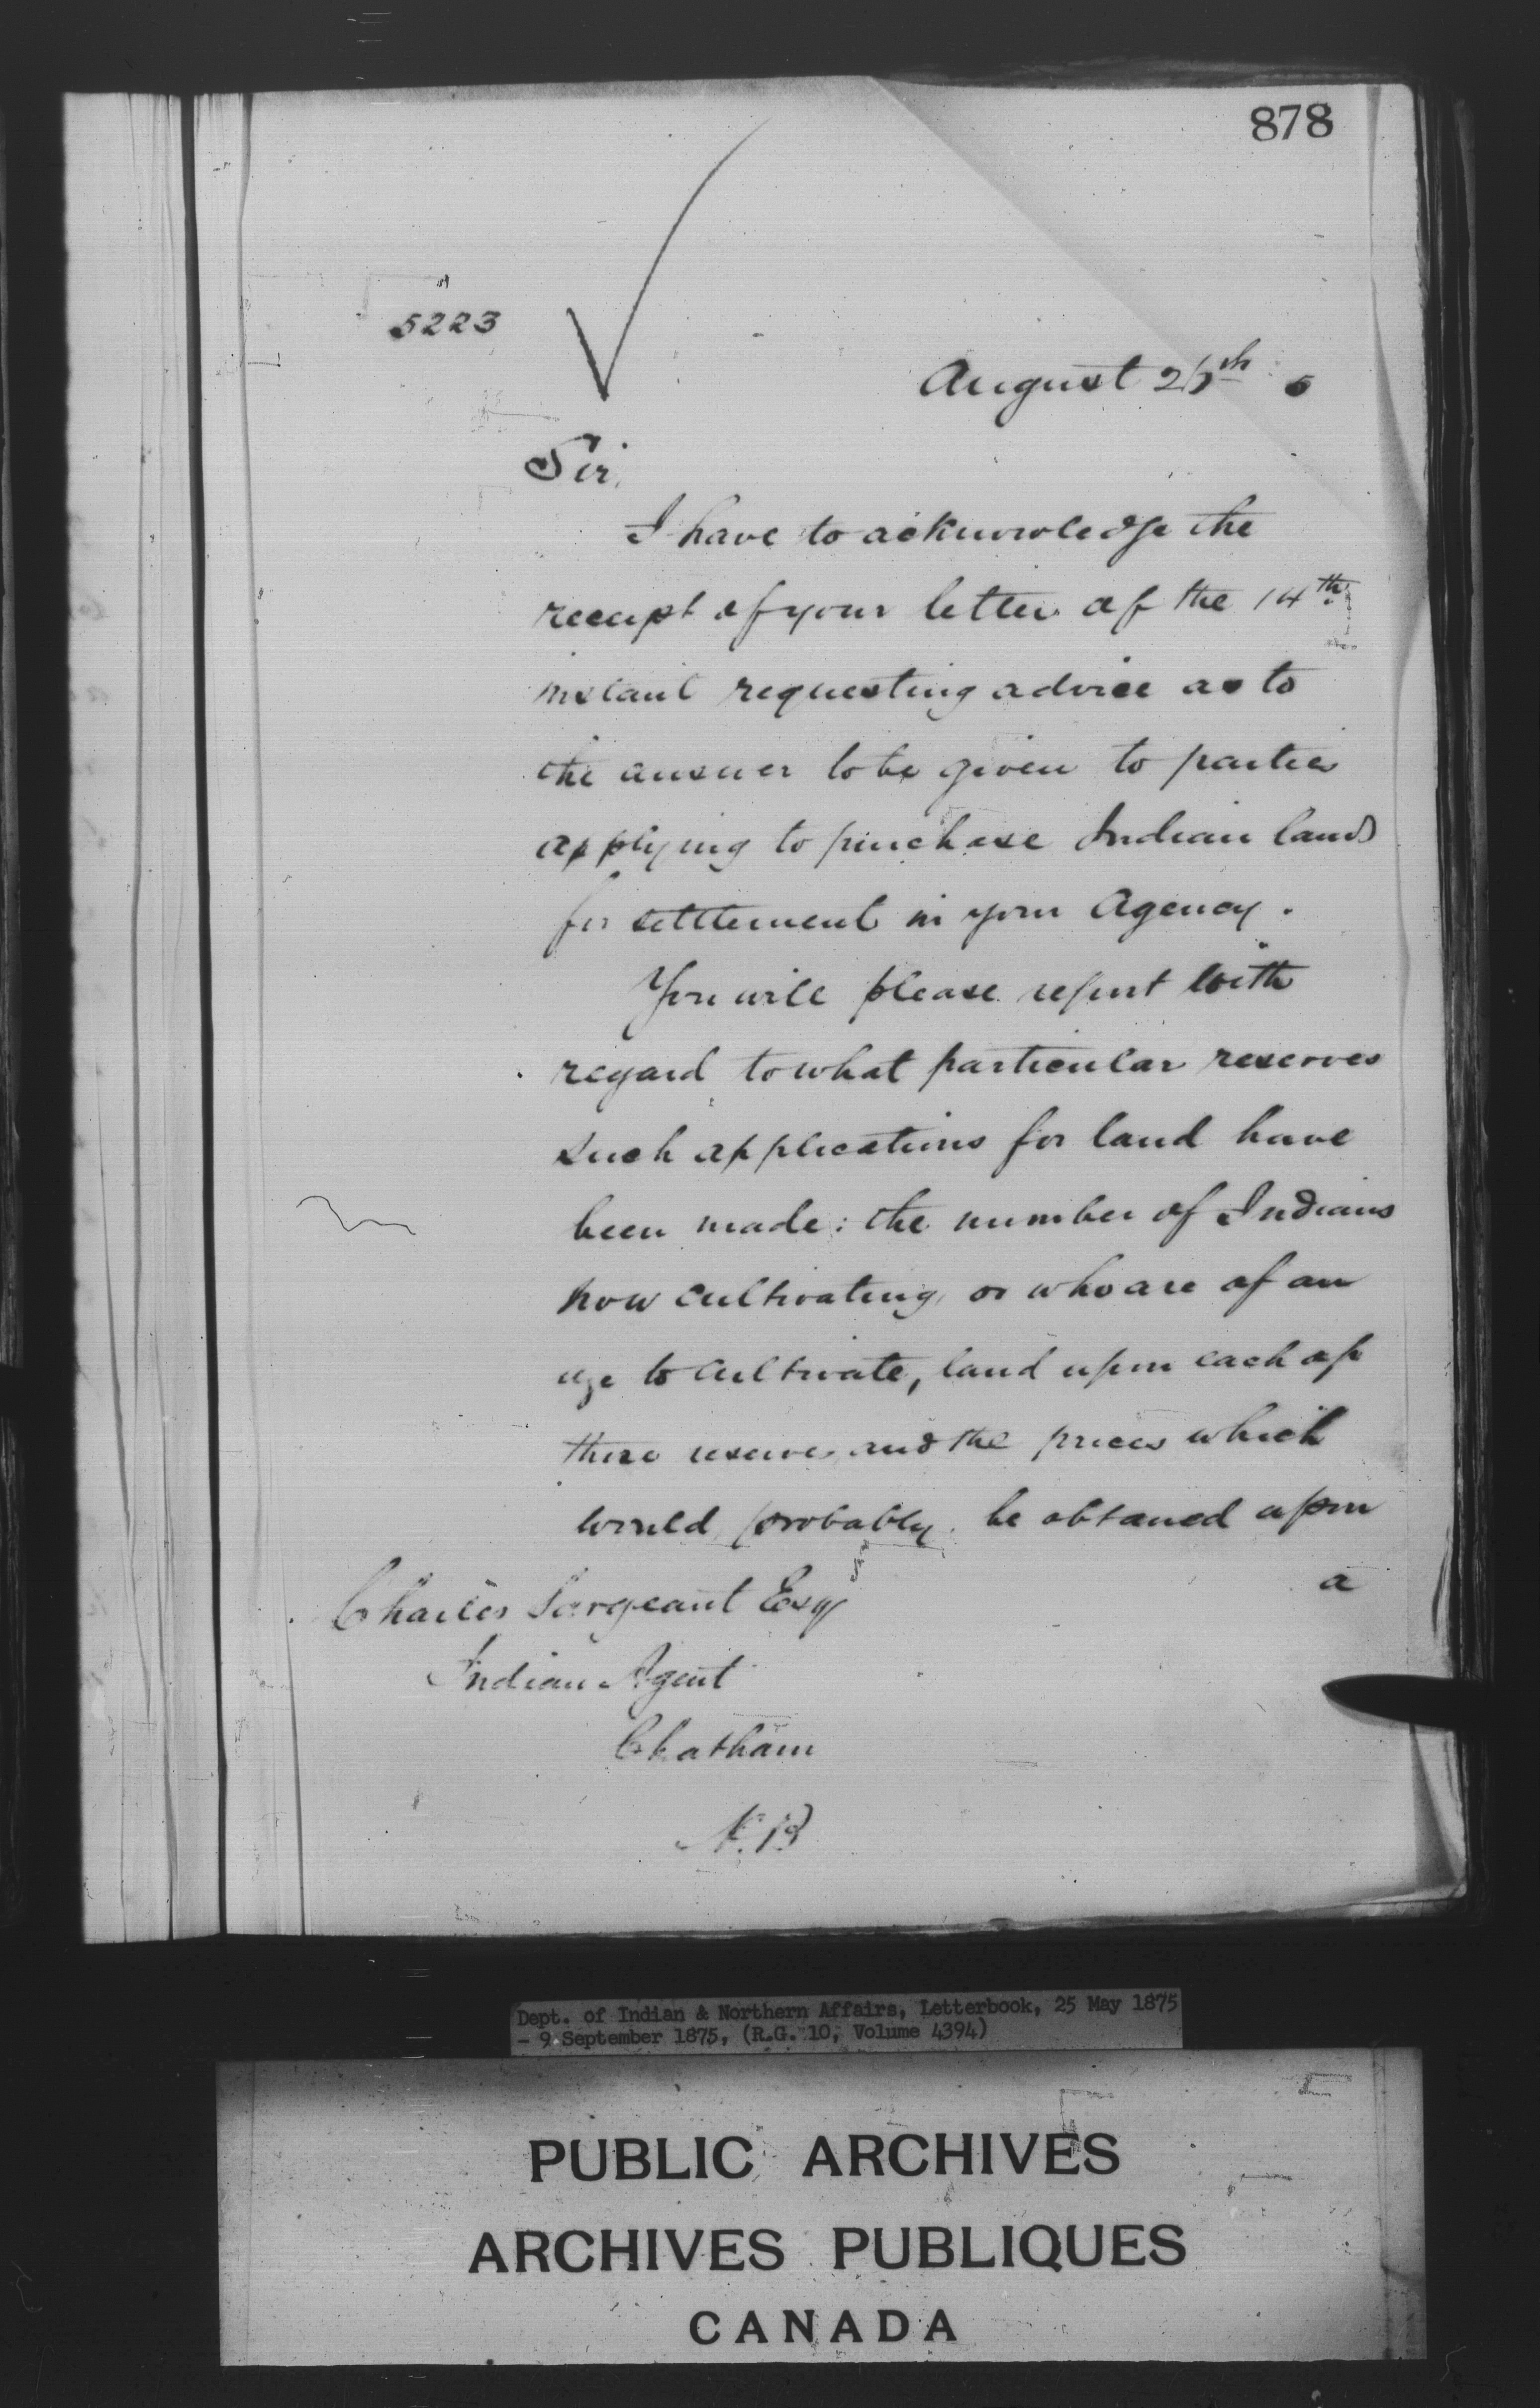 878
5223
August 26th 5
Sir,
I have to acknowledge the
receipt of your letter of the 14th
instant requesting advice as to
the answer to be given to parties
applying to purchase Indian lands
for settlement in your Agency.
You will please report with
regard to what particular reserves
such applications for land have
been made; the number of Indians
now cultivating, or who are of an
age to cultivate, land upon each of
these reserves, and the prices which
would probably be obtained upon
a
Charles Sargeant Esqr
Indian Agent
Chatham
N.B
Dept. of Indian & Northern Affairs, Letterbook, 25 May 1875
- 9 September 1875, (R.G. 10, Volume 4394)
PUBLIC ARCHIVES
ARCHIVES PUBLIQUES
CANADA